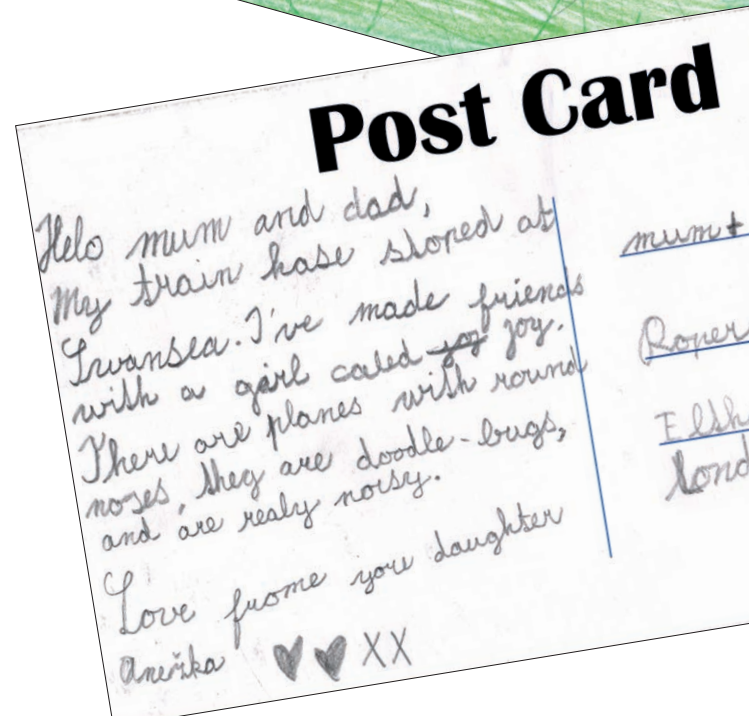 Post Card
Helo mum and dad,
My train hase stoped at
Swansea. I've made friends
with a girl caled joy joy.
There are planes with round
noses, they are doodle-bugs,
and are realy noisy.
Love frome your daughter
Anežka XX
mum +
Roper
Elsh
Lond